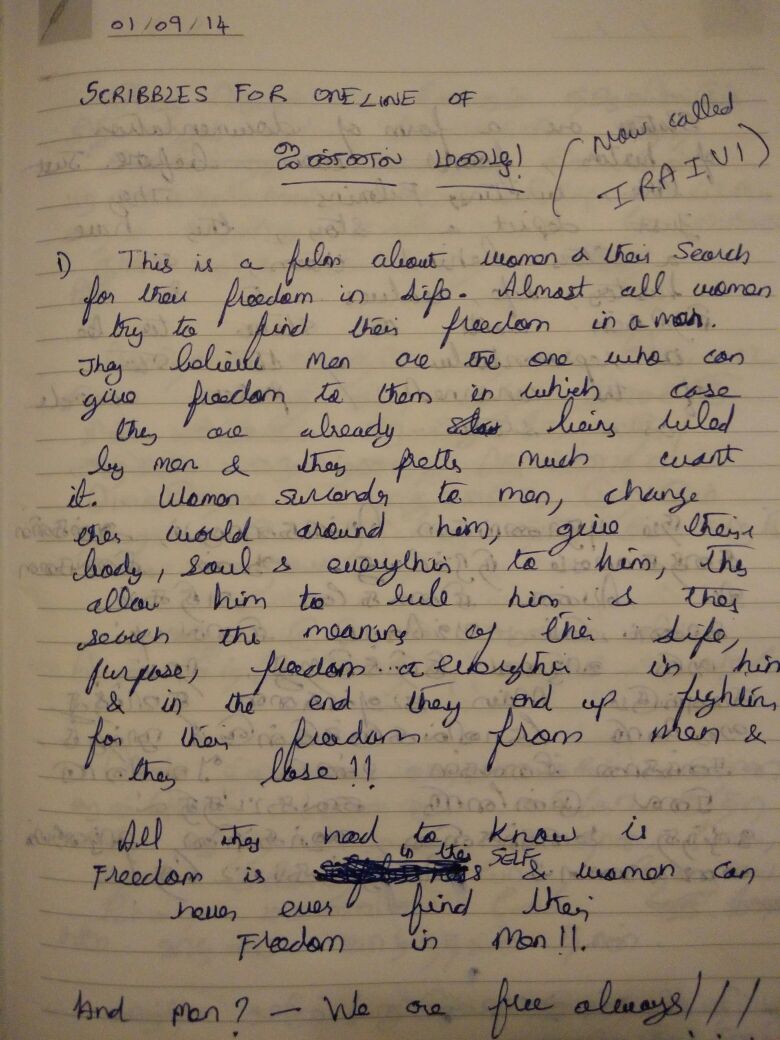 01/09/14
SCRIBBLES FOR ONE LINE OF
(Now called
IRAIVI)
1) This is a film about women & their Search
for their freedom in Life. Almost all women
try to find their freedom in a man.
They believe men are the one who can
give freedom to them in which case
they are already being ruled
by men & they pretty much want
it. Women surrender to men, change
their world around him, give their
body, soul & everything to him, they
allow him to rule him & they
search the meaning of their life,
purpose, freedom & everything in him
& in the end they end up fighting
for their freedom from men &
they lose!!
All they need to know is
Freedom is in their SELF & women can
never ever find their
Freedom in Men!!.
And Men? — We are free always!!!